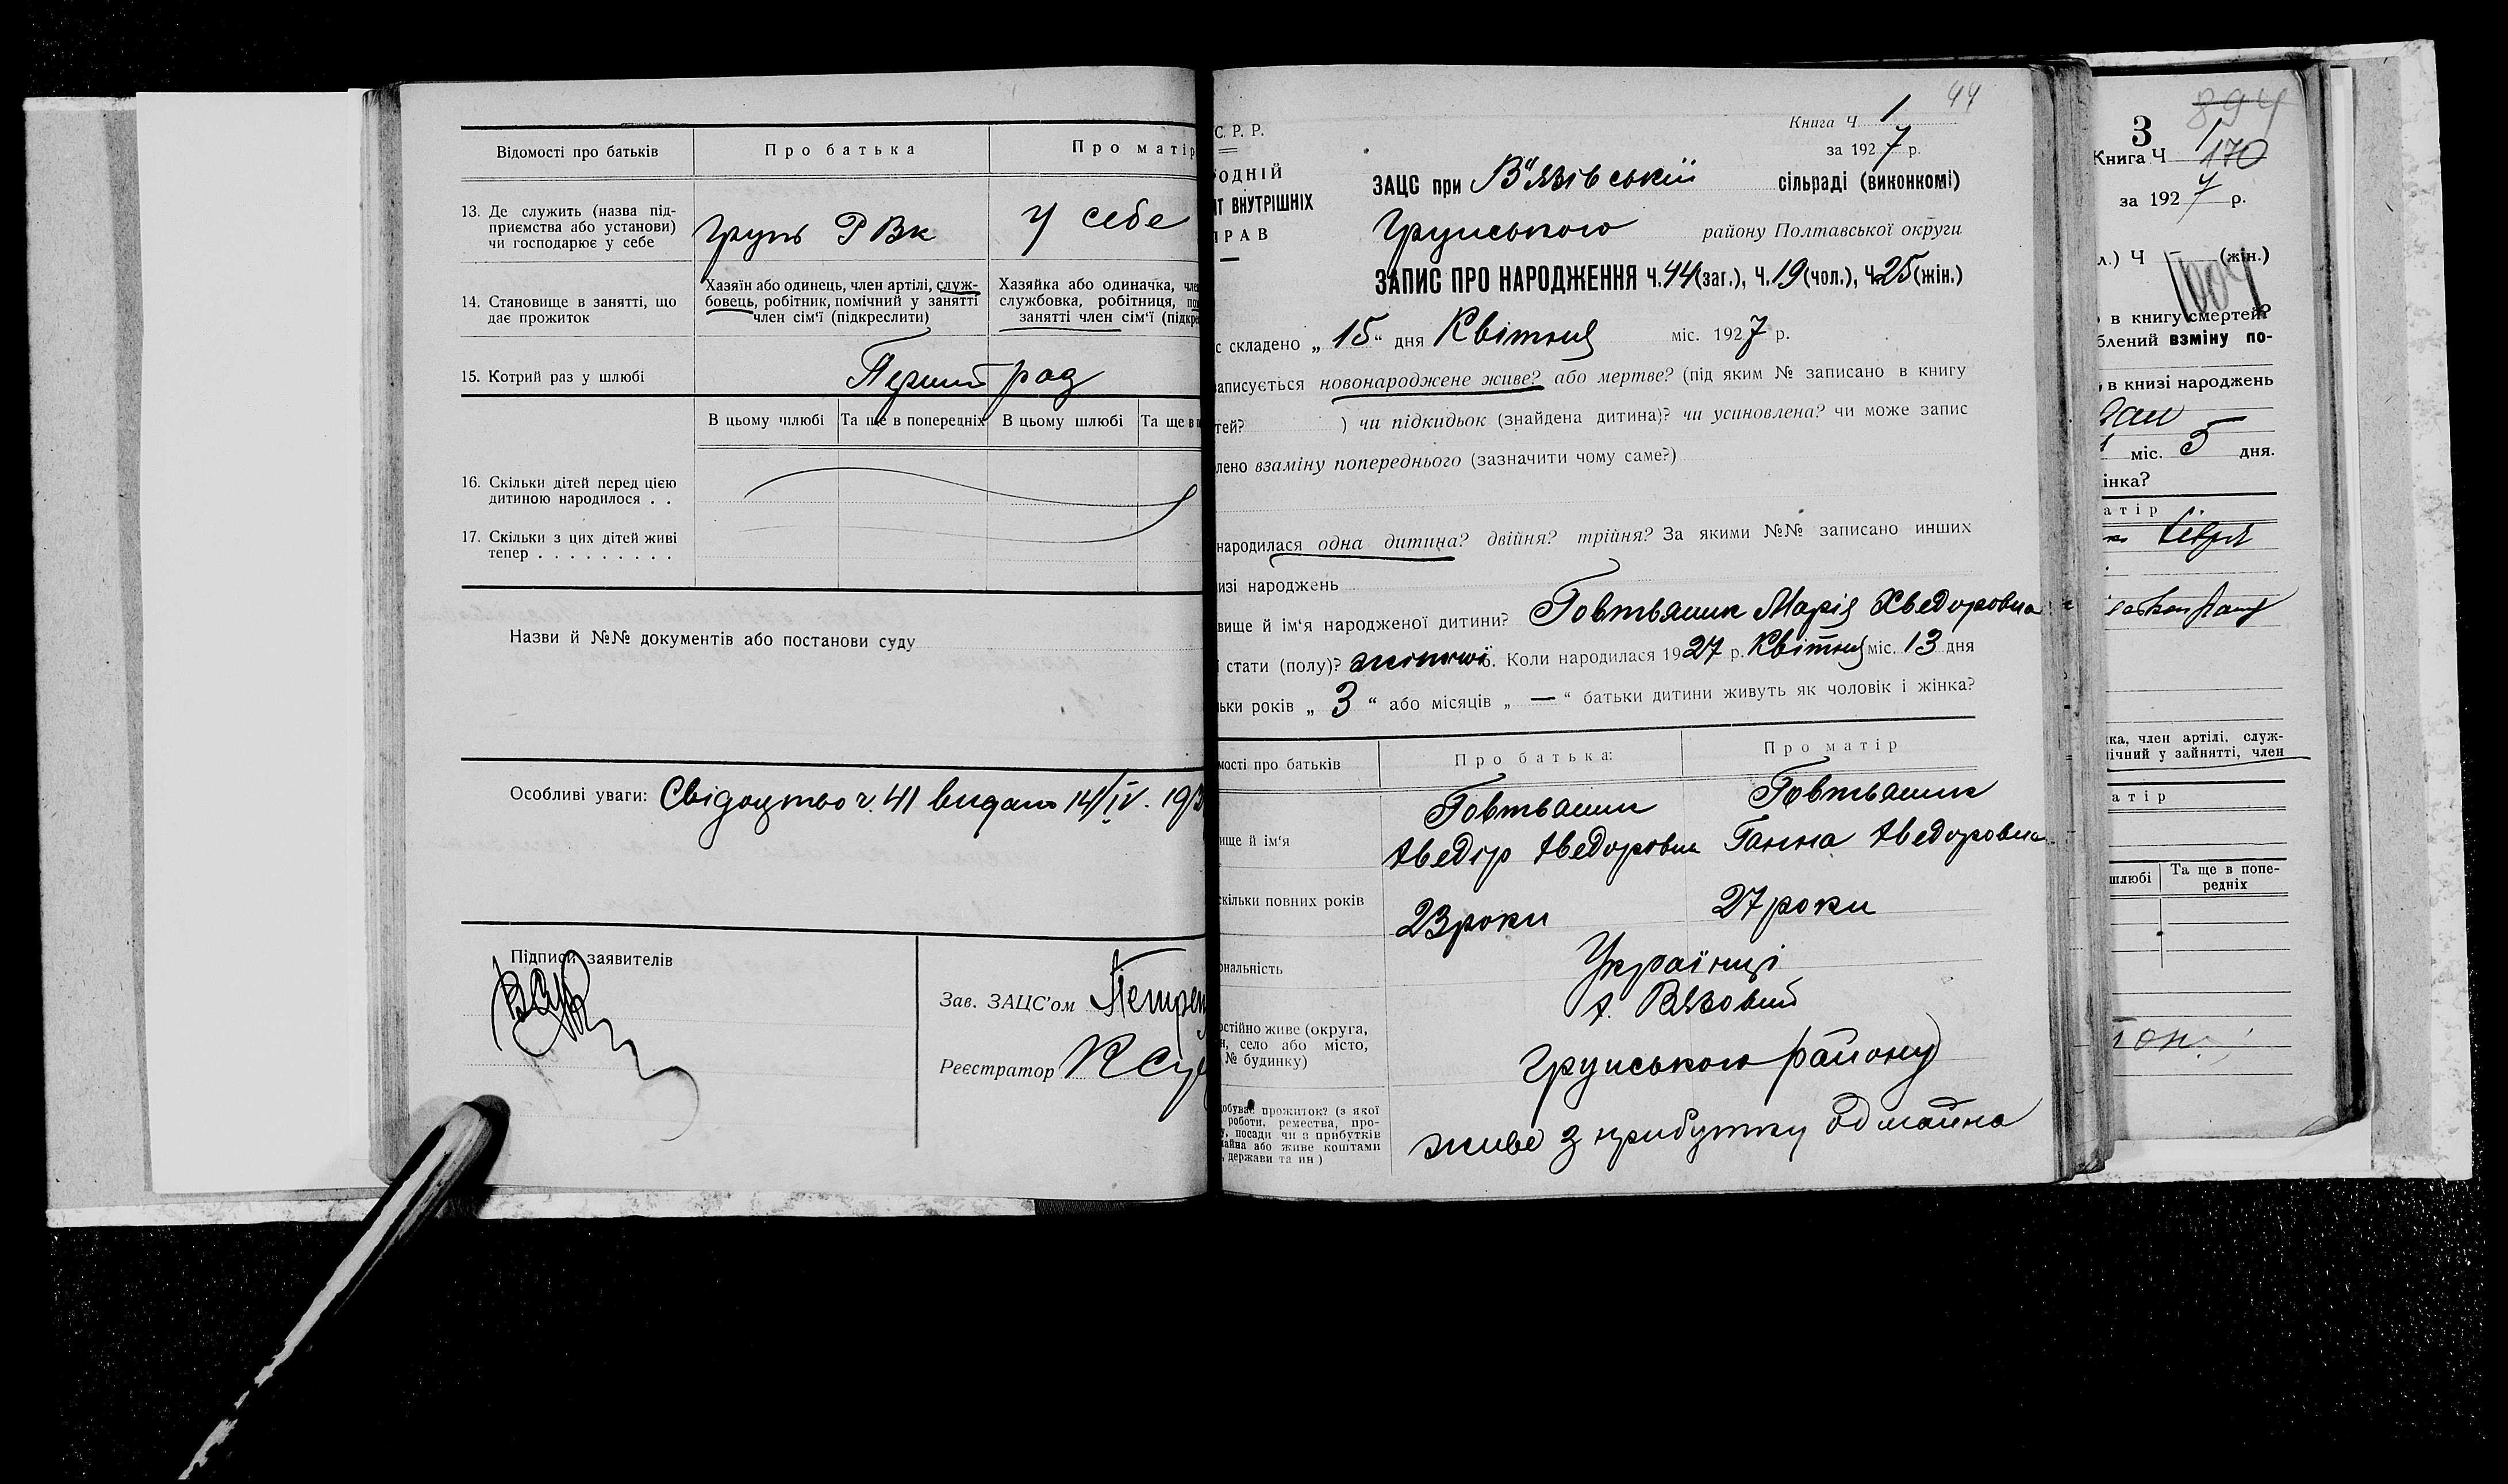 Відомості про батьків
Про батька
Про матір
13. Де служить (назва під-
приємства або установи)
чи господарює у себе
Грунь РВк
У себе
14. Становище в занятті, що
дає прожиток
Хазяїн або одинець, член артілі, служ-
бовець, робітник, помічний у занятті
член сім'ї (підкреслити)
Хазяйка або одиначка, чле
службовка, робітниця, по
занятті член сім'ї (підкре
15. Котрий раз у шлюбі
Перший раз
В цьому шлюбі
Та ще в попередніх
В цьому шлюбі
Та ще в п
16. Скільки дітей перед цією
дитиною народилося . .
17. Скільки з цих дітей живі
тепер . . . . . . . . .
Назви й №№ документів або постанови суду
Особливі уваги: Свідоцтво ч. 41 видано 14/IV. 192
Підписи заявителів
Зав. ЗАЦС'ом Петрен
Реєстратор
С. Р. Р.
ОДНІЙ
ІТ ВНУТРІШНІХ
ПРАВ
44
Книга Ч 1
за 1927 р.
ЗАЦС при В'язівській сільраді (виконкомі)
Грунського району Полтавської округи
ЗАПИС ПРО НАРОДЖЕННЯ Ч.44(заг.), Ч.19(чол.), Ч.25(жін.)
с складено „ 15 “ дня Квітня міс. 1927 р.
записується новонароджене живе? або мертве? (під яким № записано в книгу
тей? ) чи підкидьок (знайдена дитина)? чи усиновлена? чи може запис
лено взаміну попереднього (зазначити чому саме?)
народилася одна дитина? двійня? трійня? За якими №№ записано инших
изі народжень
вище й ім'я народженої дитини? Говтвяник Марія Хведоровна
ї стати (полу)? жіночої. Коли народилася 1927 р. Квітня міс. 13 дня
ьки років „ 3 “ або місяців „ — “ батьки дитини живуть як чоловік і жінка?
мості про батьків
Про батька:
Про матір
ище й ім'я
Говтвяник
Хведір Хведорович
Говтвяник
Ганна Хведоровна
скільки повних років
23 роки
27 роки
ональність
Українці
остійно живе (округа,
н, село або місто,
№ будинку)
х. Вязовий
Грунського району
обуває прожиток? (з якої
роботи, ремества, про-
у, посади чи з прибутків
майна або живе коштами
, держави та ин)
живе з прибутку од майна
894
3
1
Книга Ч 170
за 1927 р.
л.) Ч (жін.)
в книгу смертей?
блений взміну по-
в книзі народжень
міс. 5 дня.
інка?
атір
ка, член артілі, служ-
ічний у зайнятті, член
атір
шлюбі
Та ще в попе-
редніх